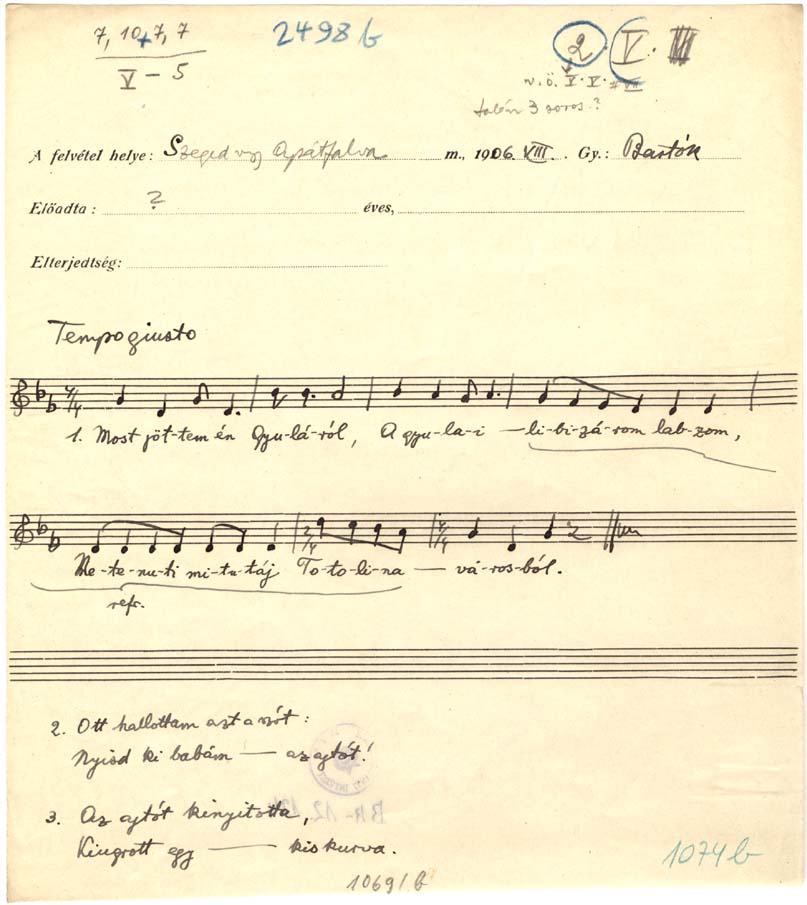 7, 10+7, 7
V – 5
2498 b
2 V. III
v.ö. V. V.
talán 3 soros?
A felvétel helye: Szeged vagy Apátfalva m., 1906. VIII. Gy.: Bartók
Előadta: ? éves,
Elterjedtség:
Tempo giusto
1. Most jöt-tem én Gyu-lá-ról, A gyu-la-i — li-bi-zá-rom lab-zom,
Re-te-nu-ti mi-tu-táj To-to-li-na — vá-ros-ból.
refr.
2. Ott hallottam azt a szót:
Nyisd ki babám — az ajtót!
3. Az ajtót kinyitotta,
Kiugrott egy — kis kurva.
1074 b
1069/b